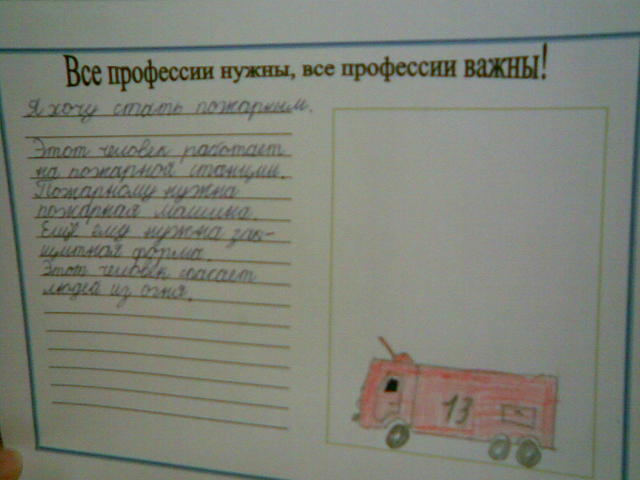 Все профессии нужны, все профессии важны!
Я хочу стать пожарным.
Этот человек работает
на пожарной станции.
Пожарному нужна
пожарная машина.
Ещё ему нужна защ-
щитная форма.
Этот человек спасает
людей из огня.
13